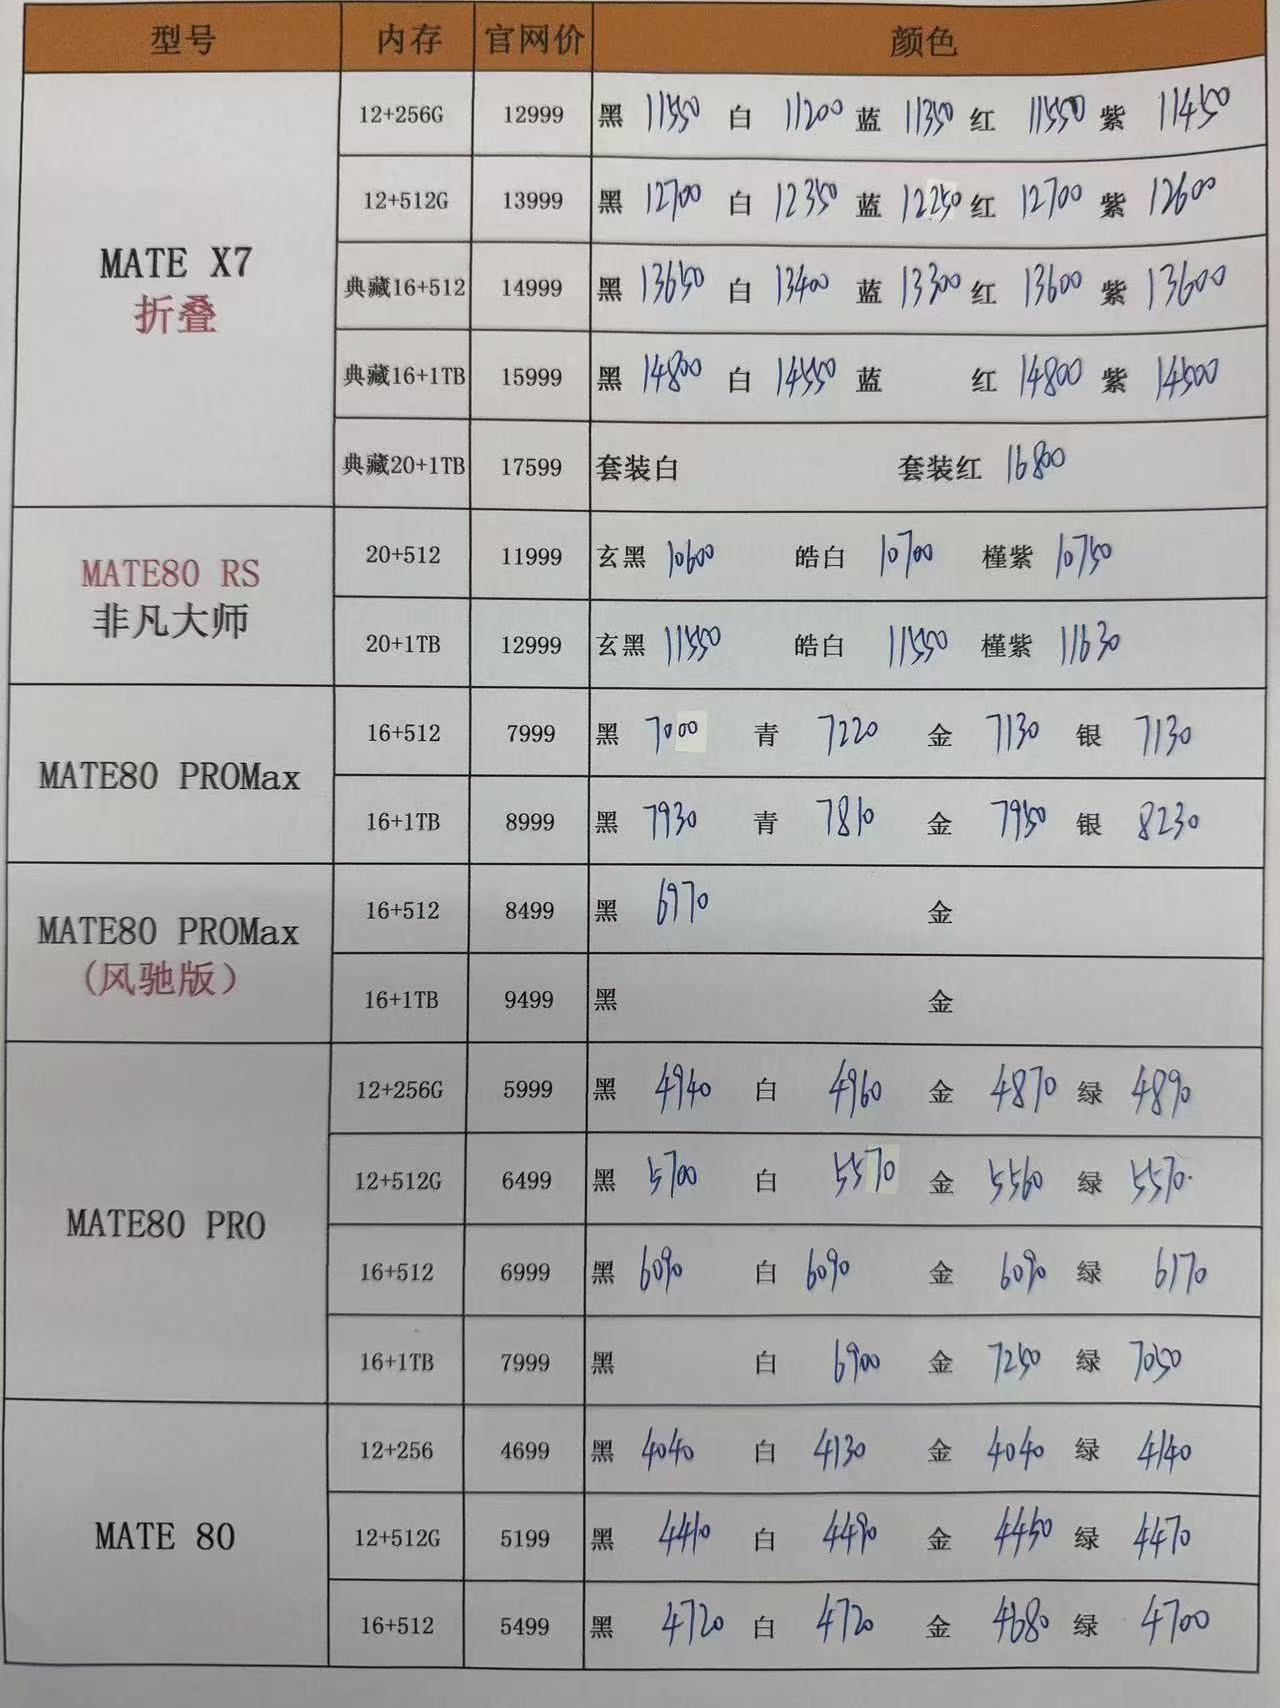 型号 内存 官网价 颜色
MATE X7
折叠
12+256G 12999 黑 11550 白 11200 蓝 11350 红 11550 紫 11450
12+512G 13999 黑 12700 白 12350 蓝 12250 红 12700 紫 12600
典藏16+512 14999 黑 13650 白 13400 蓝 13300 红 13600 紫 13600
典藏16+1TB 15999 黑 14800 白 14550 蓝 红 14800 紫 14500
典藏20+1TB 17599 套装白 套装红 16800
MATE80 RS
非凡大师
20+512 11999 玄黑 10600 皓白 10700 槿紫 10750
20+1TB 12999 玄黑 11550 皓白 11550 槿紫 11630
MATE80 PROMax
16+512 7999 黑 7000 青 7220 金 7130 银 7130
16+1TB 8999 黑 7930 青 7810 金 7950 银 8230
MATE80 PROMax
(风驰版)
16+512 8499 黑 6970 金
16+1TB 9499 黑 金
MATE80 PRO
12+256G 5999 黑 4940 白 4960 金 4870 绿 4890
12+512G 6499 黑 5700 白 5570 金 5560 绿 5570
16+512 6999 黑 6090 白 6090 金 6090 绿 6170
16+1TB 7999 黑 白 6900 金 7250 绿 7050
MATE 80
12+256 4699 黑 4040 白 4130 金 4040 绿 4140
12+512G 5199 黑 4410 白 4490 金 4450 绿 4470
16+512 5499 黑 4720 白 4720 金 4680 绿 4700